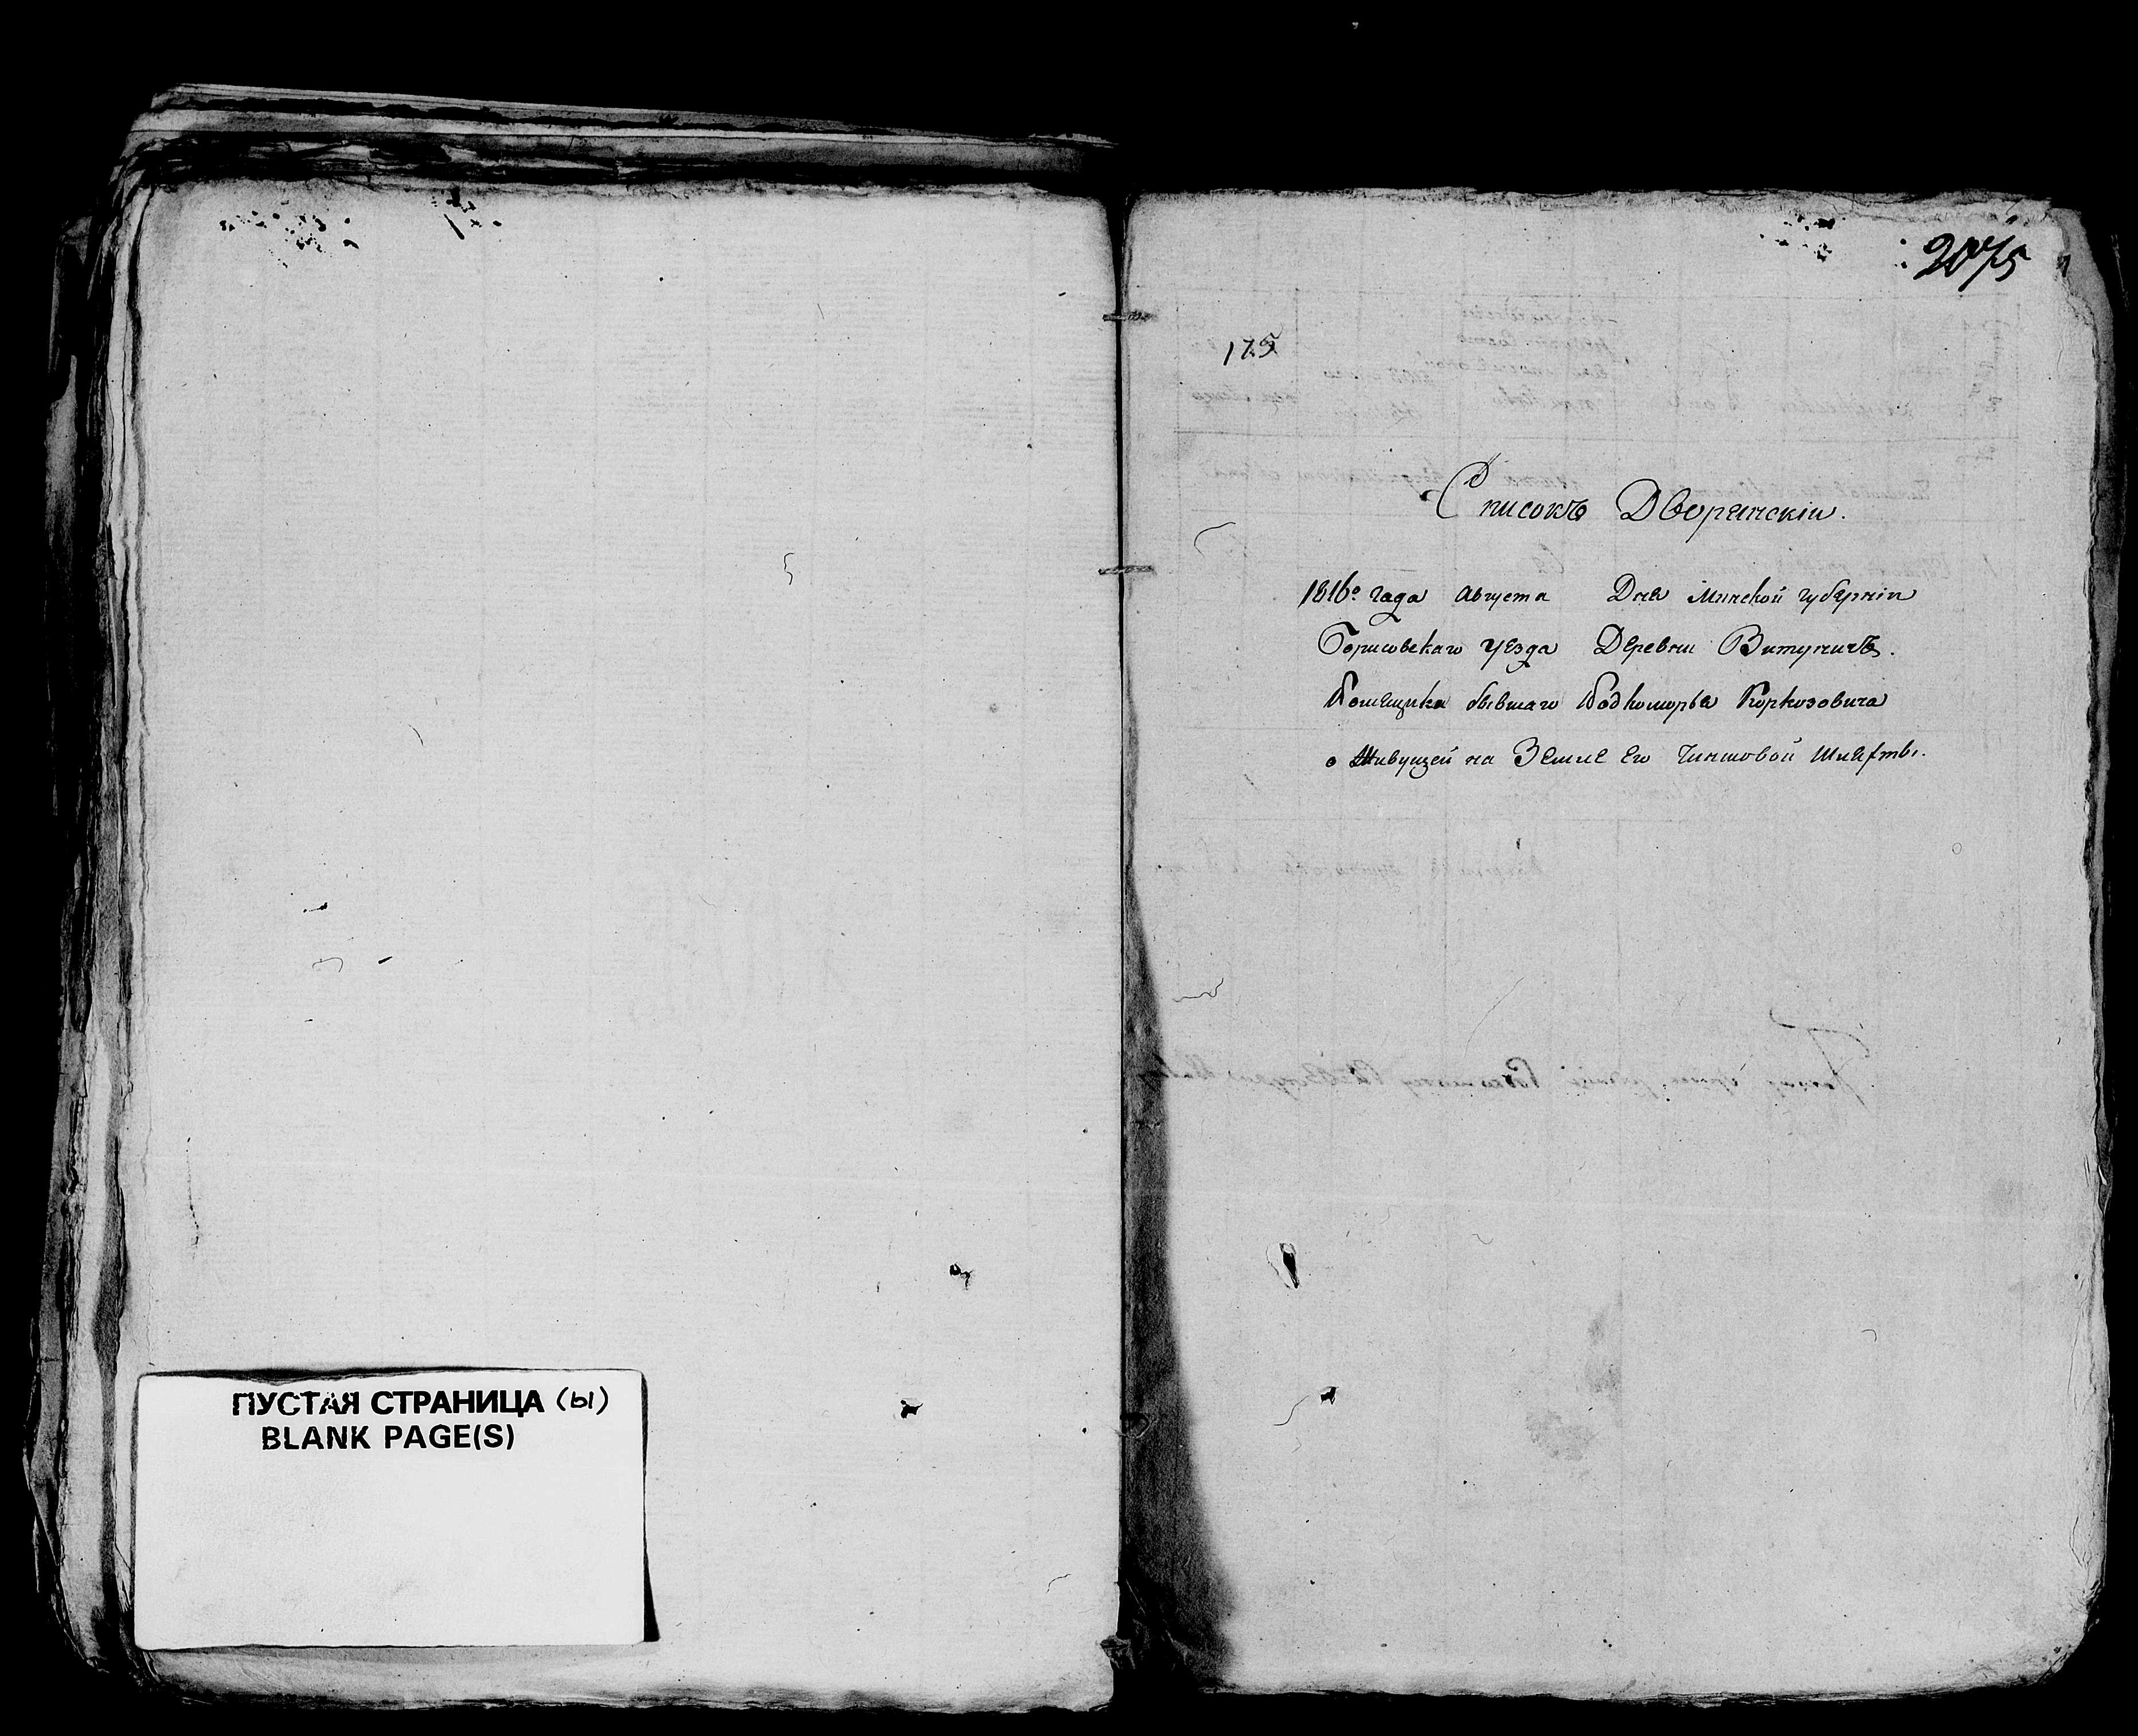 ПУСТАЯ СТРАНИЦА (ы)
BLANK PAGE(S)
2075
175
Списокъ Дворянскiи.
1816о года Августа Дня Минской губернiи
Борисовскаго уезда Деревни Витуничъ.
Помещика бывшаго Подкоморъя Коркозовича
о Живущей на Земле Его Чиншовой Шляхты.